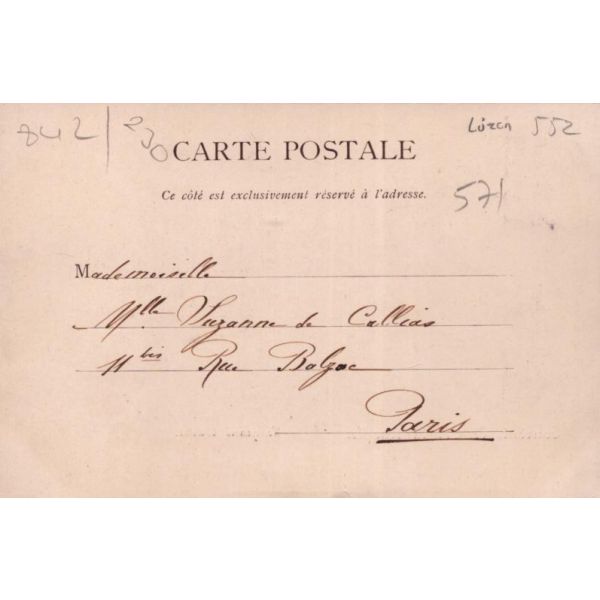 842 230 Lüzen 552
CARTE POSTALE
Ce côté est exclusivement réservé à l'adresse.
571
Mademoiselle
Mlle. Suzanne de Callias
11 bis Rue Balzac
Paris